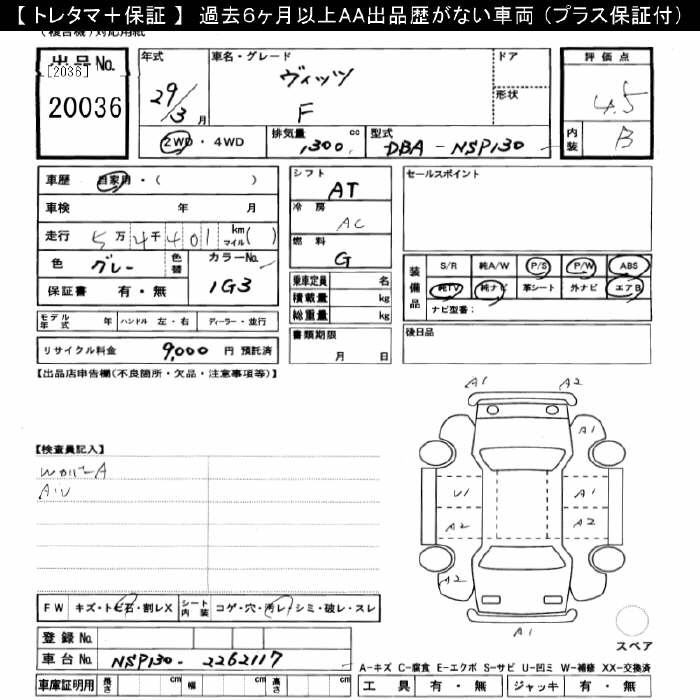 【 トレタマ＋保証 】 過去6ヶ月以上AA出品歴がない車両 (プラス保証付)
(複合機)対応用紙
出品No.
[2036]
20036
年式
29/3 月
車名・グレード
ヴィッツ
F
ドア
形状
2WD ・ 4WD
排気量 1,300 cc
型式 DBA - NSP130
評価点
4.5
内装 B
車歴 自家用・( )
車検 年 月
走行 5万4千401 km マイル ( )
色 グレー 色替
カラーNo. 1G3
保証書 有・無
モデル年式 年 ハンドル 左・右 ディーラー・並行
リサイクル料金 9,000 円 預託済
シフト
AT
冷房
AC
燃料
G
乗車定員 名
積載量 kg
総重量 kg
書類期限
月 日
セールスポイント
装備品
S/R 純A/W P/S P/W ABS
純TV 純ナビ 革シート 外ナビ エアB
ナビ型番:
後日品
【出品店申告欄(不良箇所・欠品・注意事項等)】
【検査員記入】
WカバーA
A・U
A1 A2
A1
U1 A1
A2 A2
A2
A1
スペア
FW キズ・トビ石・割レX シート内装 コゲ・穴・汚レ・シミ・破レ・スレ
登録No.
車台No. NSP130-2262117
車庫証明用 長さ cm 幅 cm 高さ cm
A-キズ C-腐食 E-エクボ S-サビ U-凹ミ W-補修 XX-交換済
工具 有・無 ジャッキ 有・無